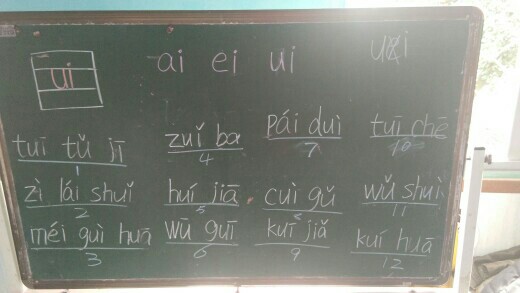 ui ai ei ui uei
tuī tǔ jī zuǐ ba pái duì tuī chē
1 4 7 10
zì lái shuǐ huí jiā cuì gǔ wǔ shuì
2 5 8 11
méi guì huā wū guī kuī jiǎ kuí huā
3 6 9 12